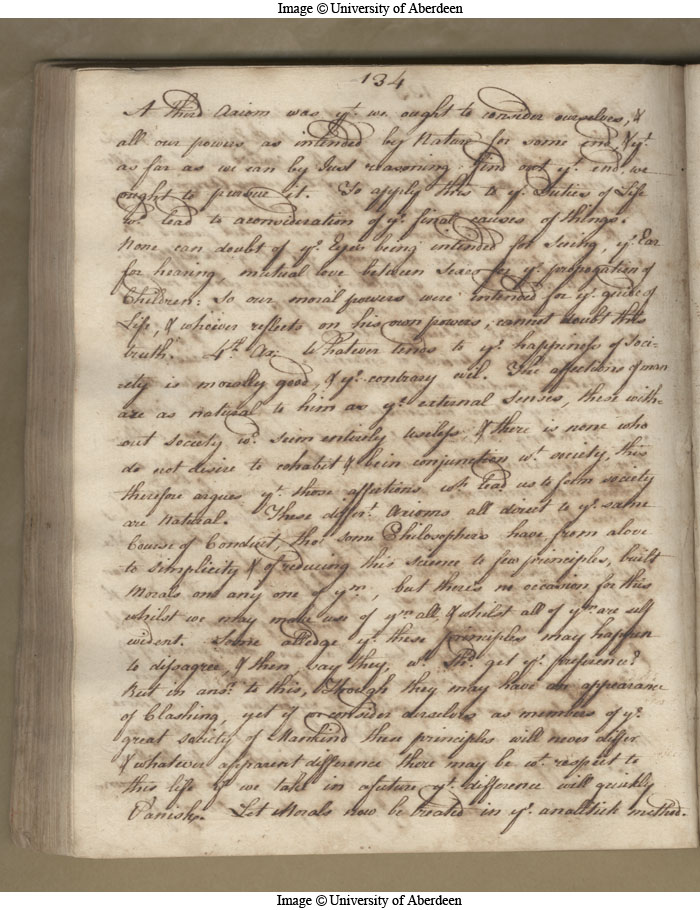 Image © University of Aberdeen
134
A third Axiom was yt. we ought to consider ourselves, &
all our powers as intended by Nature for some end, & yt.
as far as we can by Just reasoning find out yt. end, we
ought to pursue it. To apply this to ye. Duties of Life
wd. lead to a consideration of ye. final causes of things.
None can doubt of ye. Eyes being intended for Seeing, ye. Ear
for hearing mutual love between Sexes for ye. propagation of
Children: So our moral powers were intended for ye. guide of
Life, & whoever reflects on his own powers, cannot doubt this
truth. 4th. Ax: Whatever tends to ye. happiness of Soci-
ety is morally good, & ye. contrary evil. The affections of man
are as natural to him as ye. external senses, these with-
out society wd. seem entirely useless, & there is none who
do not desire to cohabit & be in conjunction wt. society, this
therefore argues yt. those affections wh. lead us to form society
are Natural. These differt. Axioms all direct to ye. same
Course of Conduct, tho' some Philosophers have from a love
to simplicity & of reducing this Science to few principles, built
Morals on any one of ym, but there's no occasion for this
whilst we may make use of ym all, & whilst all of ym are self
evident. Some alledge yt. these principles may happen
to disagree & then say they, wh. Shd. get ye. preference?
But in ansr. to this, Though they may have an appearance
of Clashing, yet if we consider ourselves as members of ye.
great society of Mankind these principles will never differ
& whatever apparent difference there may be wt. respect to
this life if we take in a future yt. difference will quickly
Vanish. Let Morals now be treated in ye. analltick method.
Image © University of Aberdeen